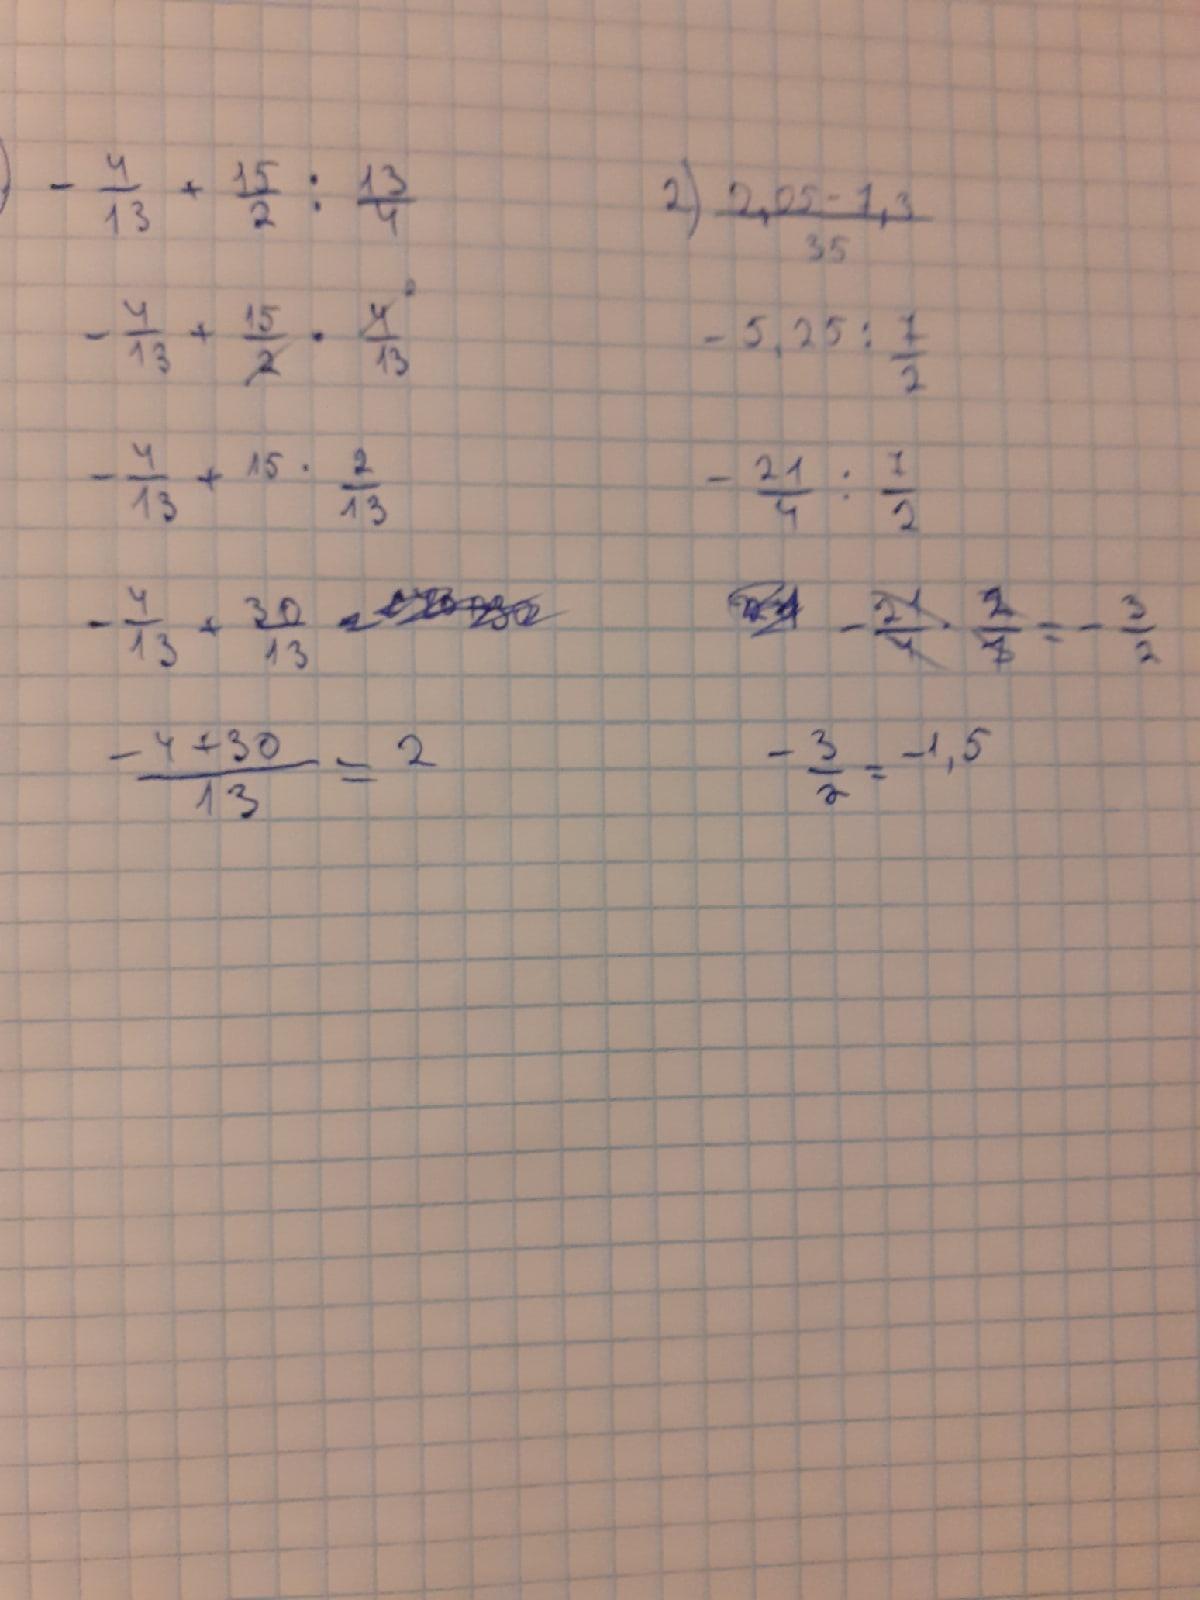 ) - 4/13 + 15/2 : 13/4
- 4/13 + 15/2 · 4/13
- 4/13 + 15 · 2/13
- 4/13 + 30/13 =
(-4+30)/13 = 2
2) (2,05-7,3)/35
- 5,25 : 7/2
- 21/4 : 7/2
- 21/4 · 2/7 = - 3/2
- 3/2 = -1,5